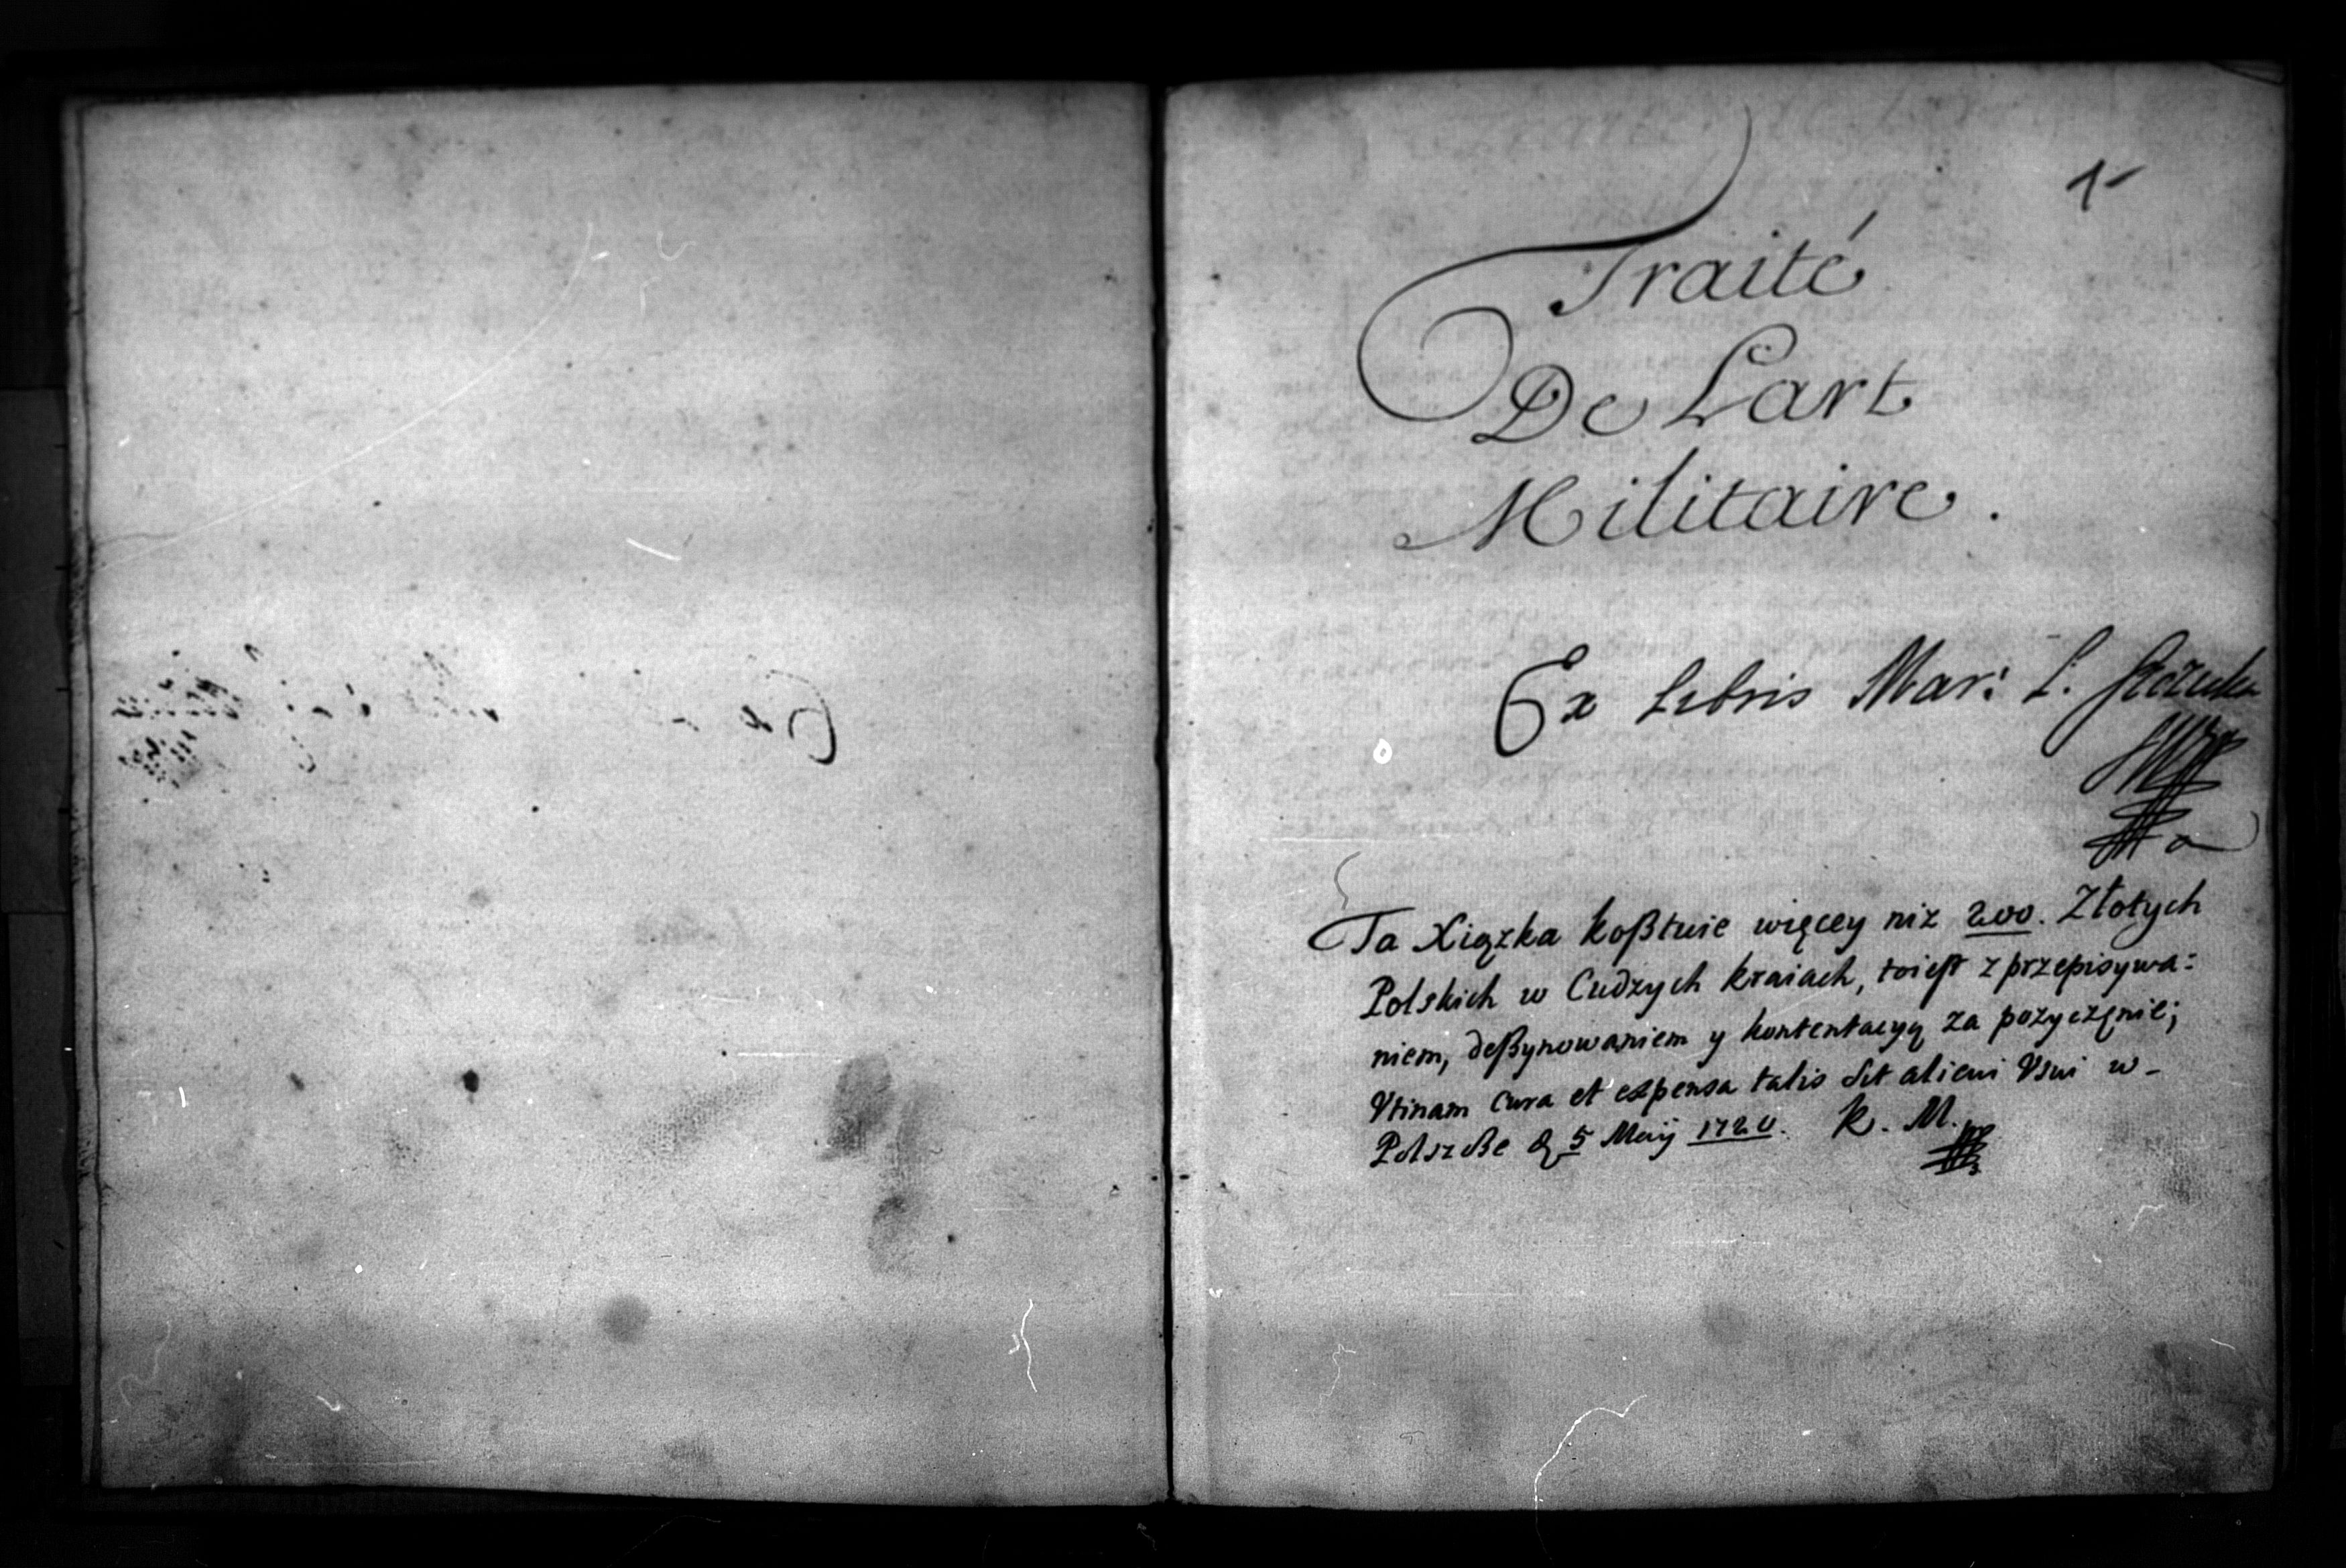 1
Traité
De Lart
Militaire.
Ex Libris Mar: L. Szczuka
Ta Xiązka koßtuie więcey niz 200. Złotych
Polskich w Cudzych kraiach, toiest z przepisywa:
niem, deßynowaniem y kontentacyą za pozyczęnie;
Vtinam cura et expensa talis sit alieni Vsui w-
Polszcße d 5 Maij 1720. K. M.